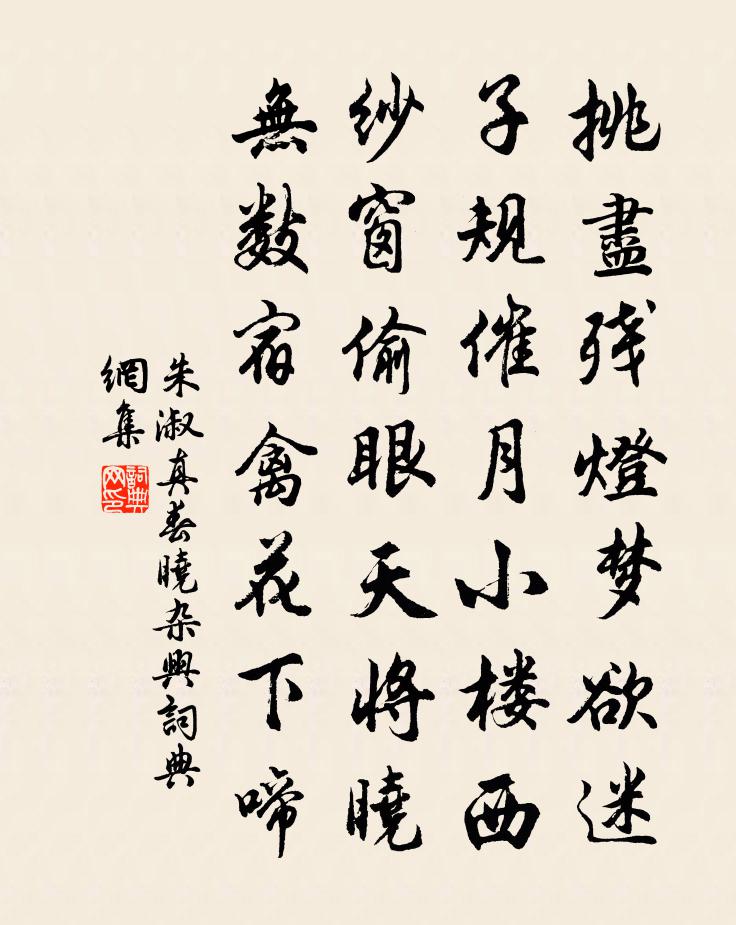 挑盡残燈梦欲迷
子规催月小楼西
纱窗偷眼天将曉
無数宿禽花下啼
朱淑真春曉杂興詞典
網集
詞典網印